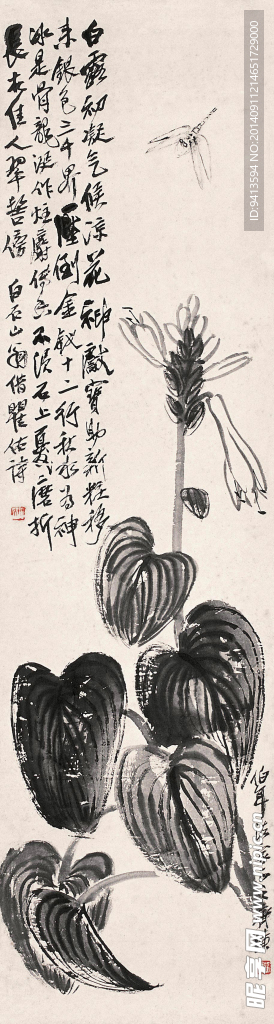 白露初凝气候凉花神献宝助新妆移
来银色三千界压倒金钗十二行秋水为神
冰是骨龙涎作炷麝供香不须石上忧磨折
长本佳人翠髻傍 白石山翁借瞿佑诗
ID:9413594 NO:20140911214651729000
昵享网
www.nipic.cn